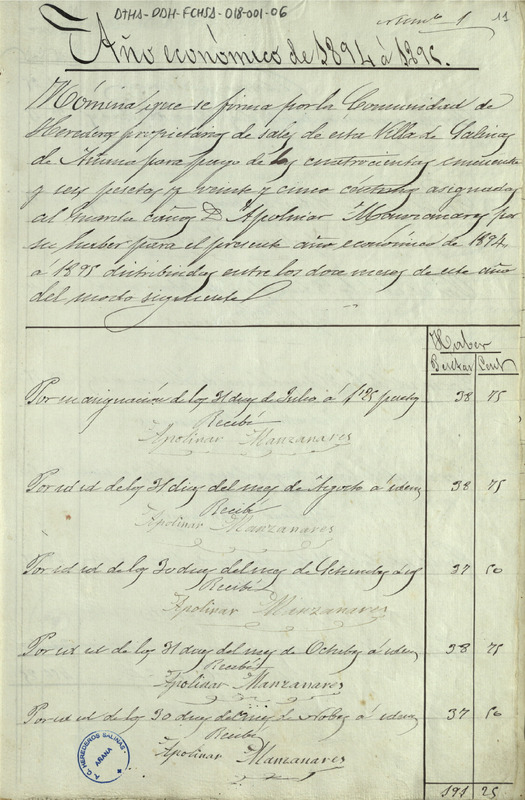 DTHA-DDH-FCHSA-018-001-06
11
Año económico de 1894 á 1895.
Nómina que se firma por la Comunidad de
Herederos propietarios de sales de esta Villa de Salinas
de Añana para pago de las cuatrocientas cincuenta
y seis pesetas y veinte y cinco centimos asignadas
al guarda caños D. Apolinar Manzanares por
su haber para el presente año económico de 1894
a 1895 distribuidas entre los doce meses de este año
del modo siguiente
Haber
Pesetas Cent
Por su asignación de los 31 dias de Julio á 1'25 pesetas 38 75
Recibí
Apolinar Manzanares
Por id id de los 31 dias del mes de Agosto á idem 38 75
Recibí
Apolinar Manzanares
Por id id de los 30 dias del mes de Setiembre 37 50
Recibí
Apolinar Manzanares
Por id id de los 31 dias del mes de Octubre á idem 38 75
Recibí
Apolinar Manzanares
Por id id de los 30 dias del mes de Nobre á idem 37 50
Recibí
Apolinar Manzanares
191 25
HEREDEROS SALINAS
AÑANA